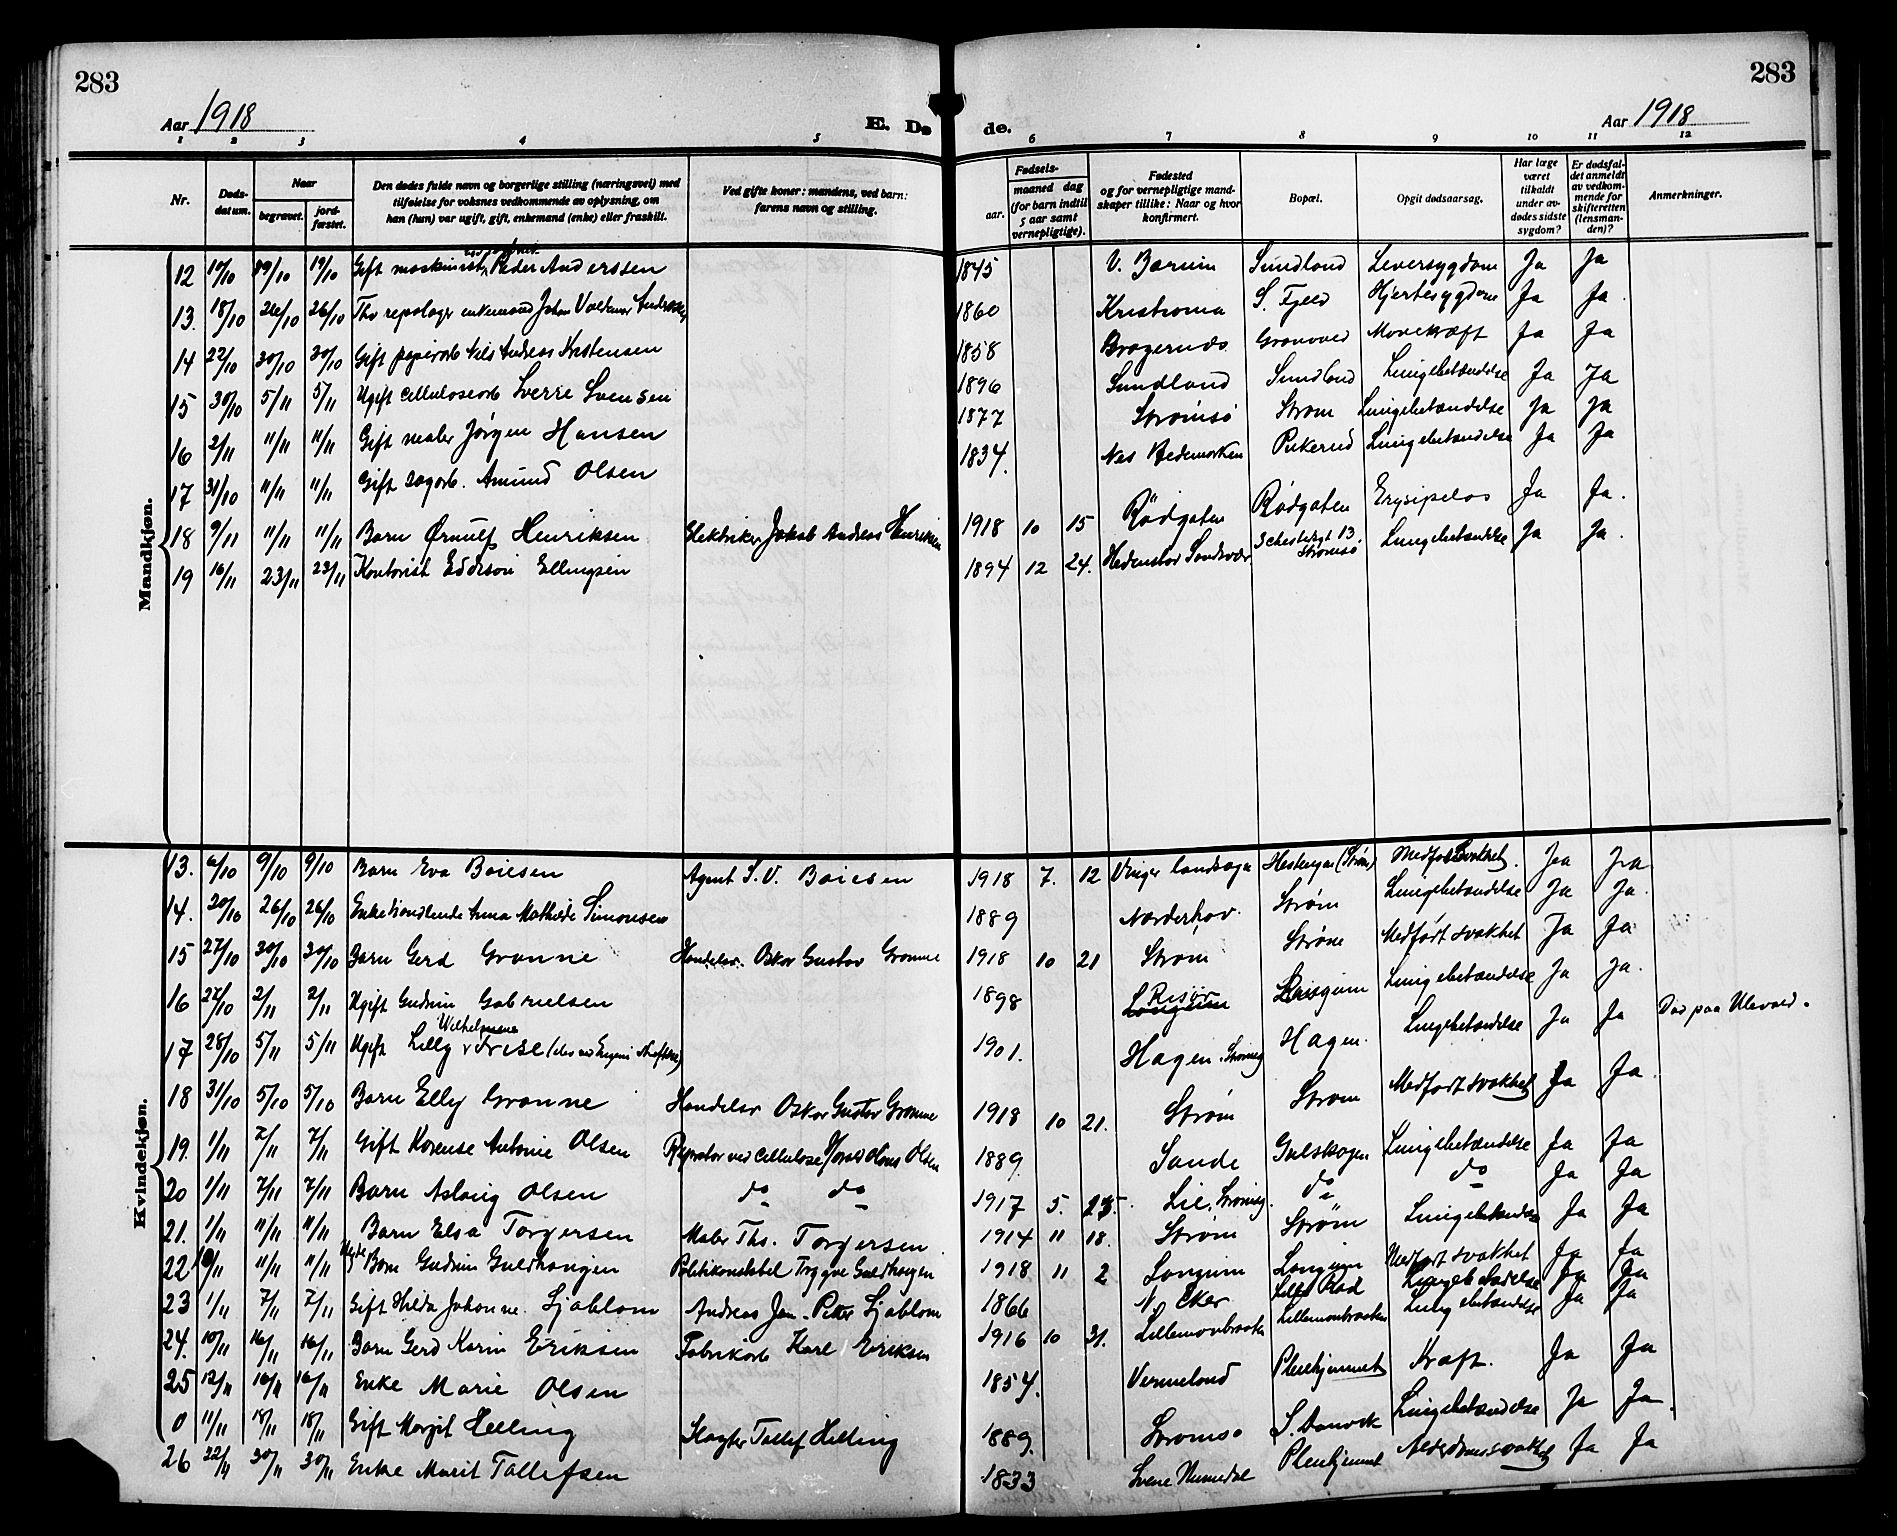 283
283
Aar 1918
E. Dø
de.
Aar 1918
1 2 3 4 5 6 7 8 9 10 11 12
Nr.
Døds-datum.
Naar
begravet.
jord-fæstet.
Den dødes fulde navn og borgerlige stilling (næringsvei) med tilføielse for voksnes vedkommende av oplysning, om han (hun) var ugift, gift, enkemand (enke) eller fraskilt.
Ved gifte koner: mandens, ved barn: farens navn og stilling.
Fødsels-
aar.
maaned dag (for barn indtil 5 aar samt vernepligtige).
Fødested og for vernepligtige mandskaper tillike: Naar og hvor konfirmert.
Bopæl.
Opgit dødsaarsag.
Har læge været tilkaldt under avdødes sidste sygdom?
Er dødsfaldet anmeldt av vedkommende for skifteretten (lensmanden)?
Anmerkninger.
Mandkjøn.
12 19/10 19/10 Gift maskinist Peder Anderssen 1845 V. Bærum Sundland Leversygdom Ja Ja
13. 18/10 26/10 26/10 enkemand Johan Valdemar 1860 Kristiania S. Fjeld Hjertesygdom Ja Ja.
14 22/10 30/10 30/10 Gift papirarb Nils Andreas Kristensen 1858 Bragernes Mavekræft Ja Ja
15 30/10 5/11 5/11 Ugift cellulosearb Sverre Svensen 1896 Sundland Sundland Lungebetændelse Ja Ja
16 2/11 11/11 11/11 Gift maler Jørgen Hansen 1877 Strømsø Strøm Lungebetændelse Ja Ja
17 31/10 11/11 11/11 Gift sagarb. Amund Olsen 1834. Nes Hedemarken Pukerud Lungebetændelse Ja Ja
18 9/11 11/11 11/11 Barn Ørnulf Henriksen Elektriker Jakob Andreas Henriksen 1918 10 15 Rødgaten Rødgaten Erysipelas Ja Ja.
19 16/11 23/11 23/11 Kontorist Edison Ellingsen 1894 12 24. Hedenstad Sandsvær 13 Strømsø Lungebetændelse Ja Ja.
Kvindekjøn.
13. 6/10 9/10 9/10 Barn Eva Boiesen Agent S. V. Boiesen 1918 7. 12 Vinger landsogn (Strøm) Medfødt svakhet. Ja Ja
14. 20/10 26/10 26/10 Enke handlende Anna Mathilde Simonsen 1889 Norderhov. Strøm Lungebetændelse Ja Ja.
15 27/10 30/10 30/10 Barn Gerd Grønne Handelsr. Oskar Gustav Grønne 1918 10 21 Strøm Strøm Medfødt svakhet Ja Ja
16 27/10 2/11 2/11 Ugift Gudrun Gabrielsen 1898 Risør Langum Lungebetændelse Ja Ja.
17 28/10 5/11 5/11 Ugift Lilly Wilhelmine 1901. Hagen. Hagen. Lungebetændelse Ja Ja Død paa Ulevaal.
18 31/10 5/10 5/10 Barn Elly Grønne Handelsr Oskar Gustav Grønne 1918 10 21. Strøm Strøm Medfødt svakhet Ja Ja.
19. 1/11 7/11 7/11 Gift Korense Antonie Olsen Reparatør ved cellulose Hans Olsen 1889. Sande Gulskogen Lungebetændelse Ja Ja
20 1/11 7/11 7/11 Barn Aslaug Olsen do do 1917 5. 23. Lie, do do Ja Ja
21. 1/11 11/11 11/11 Barn Elsa Torgersen Maler Ths. Torgersen 1914 11 18. Strøm Strøm Lungebetændelse Ja Ja
22 11/11 11/11 Barn Gudrun Guldhaugen Politikonstabel Trygve Guldhaugen 1918 11 2 Langum Langum Medfødt svakhet Ja Ja
23 1/11 7/11 7/11 Gift Hilda Johanne Sjøblom Andreas Jan. Peter Sjøblom 1866 N Eker Lungebetændelse Ja Ja
24. 10/11 16/11 16/11 Barn Gerd Karin Eriksen Fabrikarb Karl Eriksen 1916 10 31. Lungebetændelse Ja Ja
25 12/11 16/11 16/11 Enke Marie Olsen 1854. Vermeland Pleiehjemmet Kræft. Ja Ja
0 11/11 18/11 18/11 Gift Margit Helling Slagter Tallef Helling 1889. Strømsø S. Danvik Lungebetændelse Ja Ja.
26 22/11 30/11 30/11 Enke Marit Tallefsen 1833 Svene Numedal Pleiehjemmet Alderdomssvakhet Ja Ja